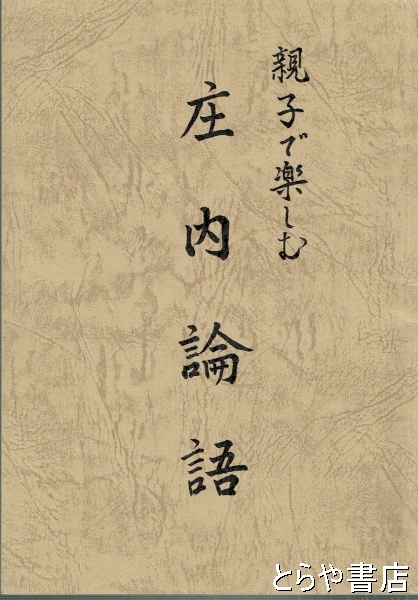 親子で楽しむ
庄内論語
とらや書店